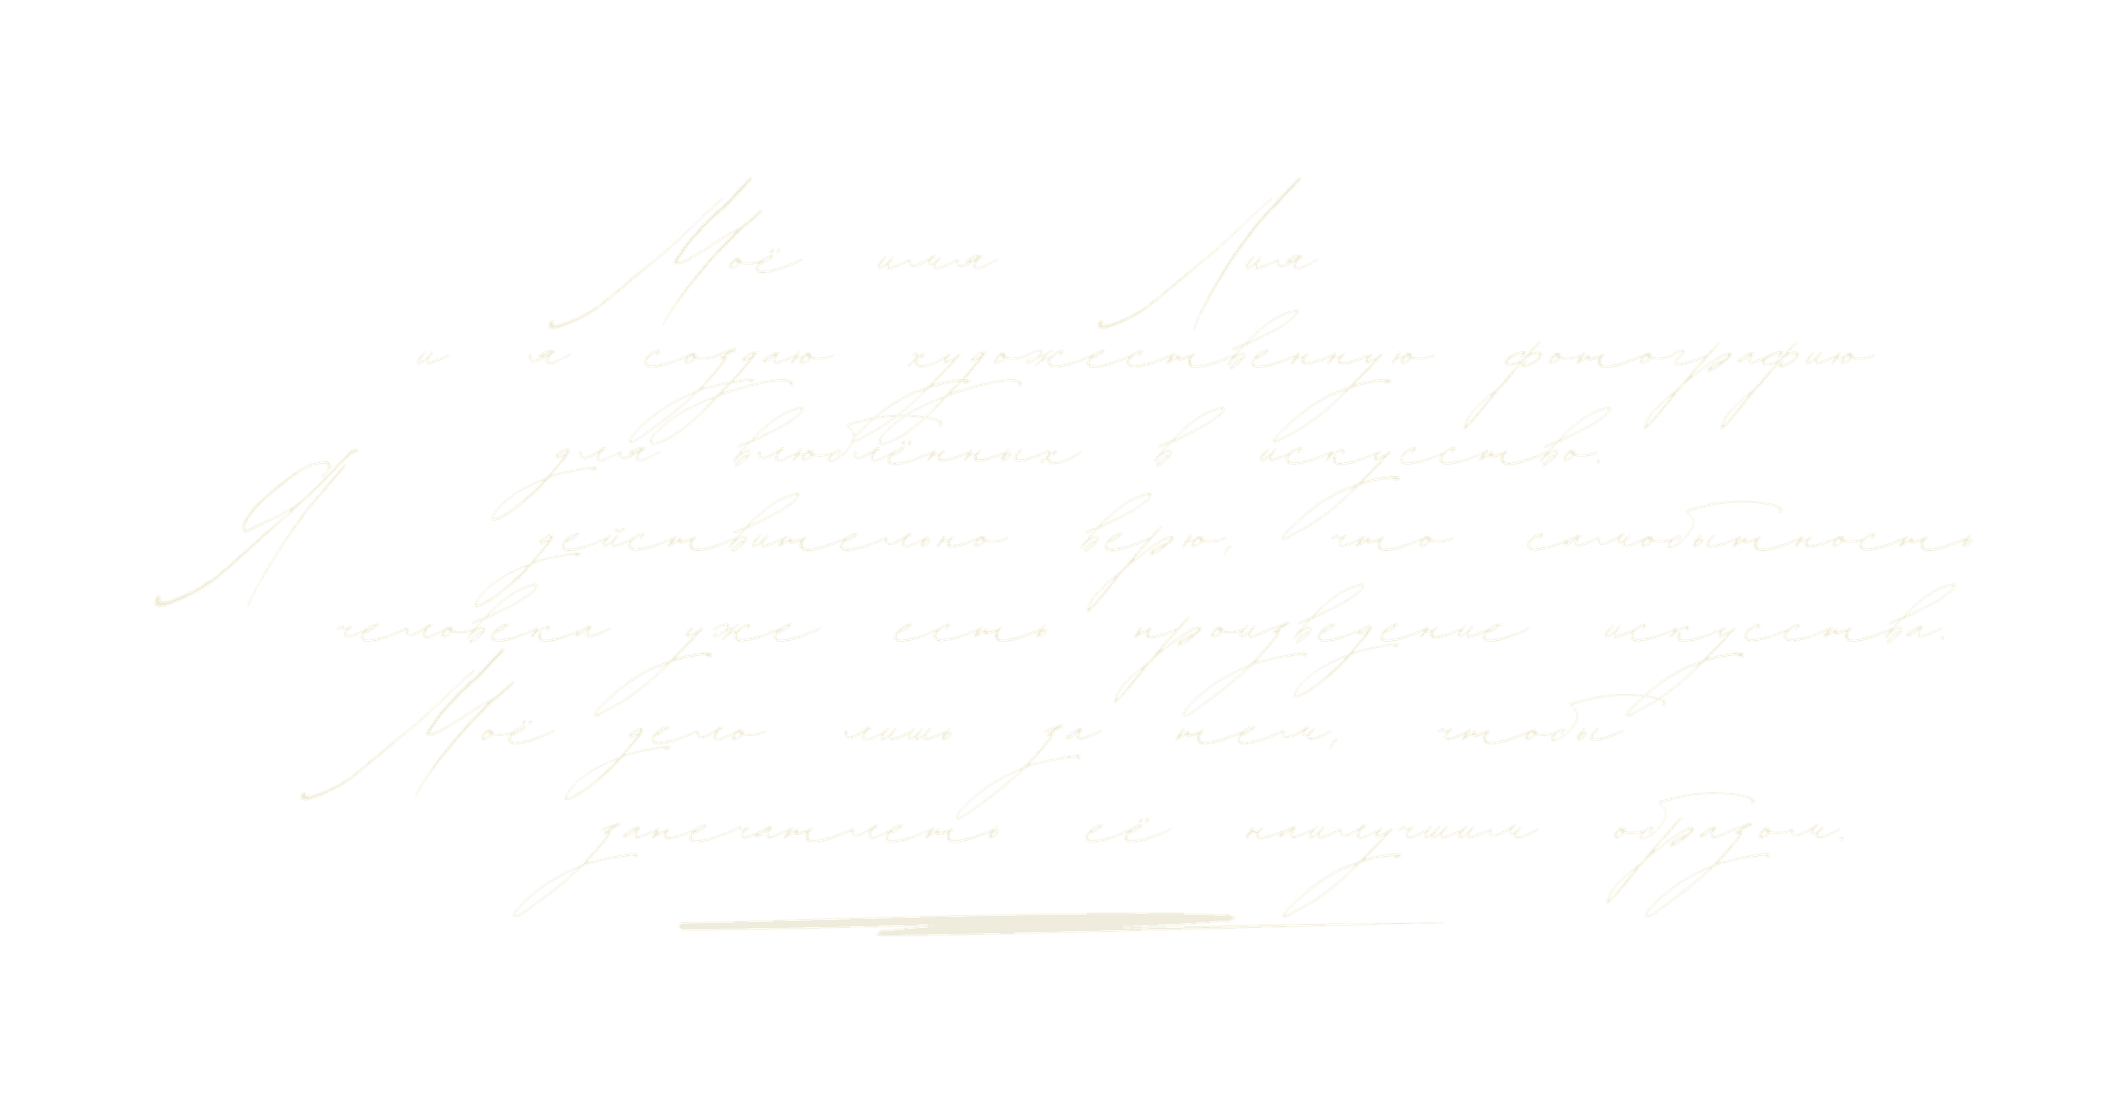 Моё имя Лия
и я создаю художественную фотографию
для влюблённых в искусство.
Я действительно верю, что самобытность
человека уже есть произведение искусства.
Моё дело лишь за тем, чтобы
запечатлеть её наилучшим образом.